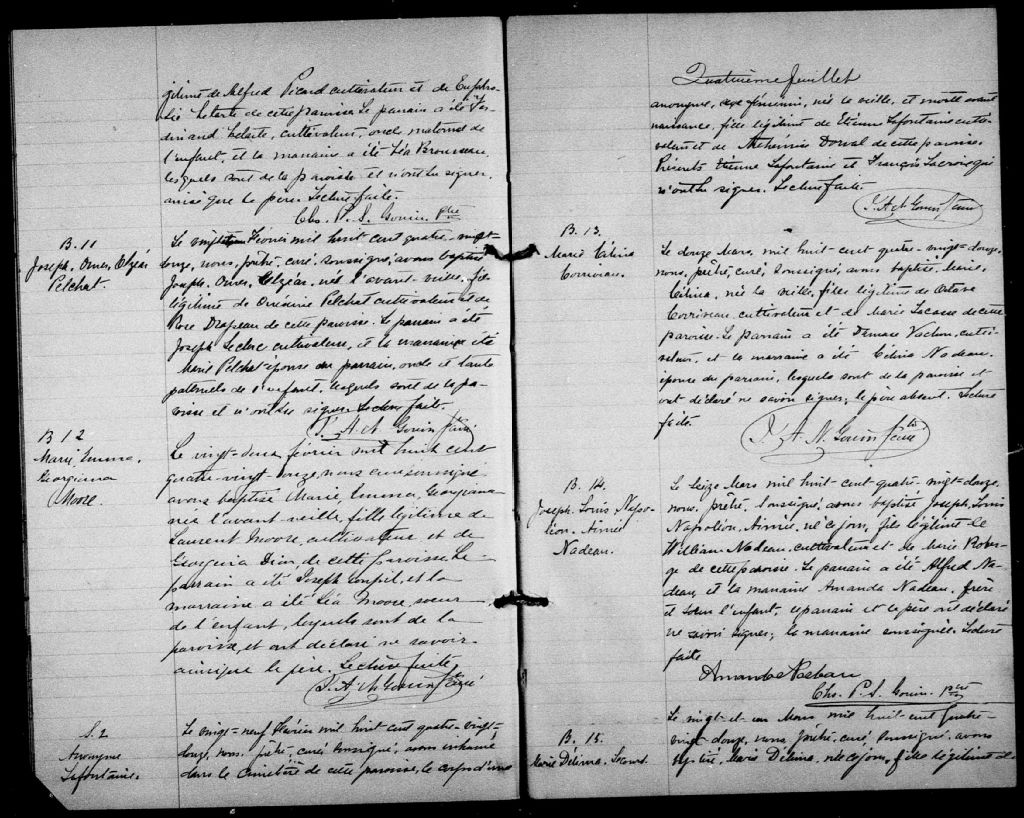 gitime de Alfred Picard cultivateur et de Euphro-
sie Letarte de cette paroisse. Le parrain a été Fer-
dinand Letarte, cultivateur, oncle maternel de
l'enfant, et la marraine a été Léa Brousseau,
lesquels sont de la paroisse et n'ont su signer,
ainsi que le père. Lecture faite.
Chs. P. S. Gouin. Ptre
B. 11
Joseph, Omer, Elzéar
Pelchat.
Le vingt Février mil huit cent quatre-vingt-
douze, nous, prêtre, curé, soussigné, avons baptisé
Joseph, Omer, Elzéar, né l'avant-veille, fils
légitime de Onésime Pelchat cultivateur et de
Rose Drapeau de cette paroisse. Le parrain a été
Joseph Leclerc cultivateur, et la marraine a été
Marie Pelchat épouse du parrain, oncle et tante
paternels de l'enfant, lesquels sont de la pa-
roisse et n'ont su signer. Lecture faite.
J. A. N. Gouin Ptre curé
B 12
Marie, Emma,
Georgianna
Moore.
Le vingt-deux février mil huit cent
quatre-vingt-douze, nous curé soussigné
avons baptisé Marie, Emma, Georgiana
née l'avant-veille, fille légitime de
Laurent Moore, cultivateur et de
Georgina Dion, de cette paroisse. Le
parrain a été Joseph et la
marraine a été Léa Moore, soeur
de l'enfant, lesquels sont de la
paroisse, et ont déclaré ne savoir
ainsi que le père. Lecture faite.
J. A. N. Gouin Ptre curé
S. 2
Anonyme
Lafontaine.
Le vingt-neuf Février mil huit cent quatre-vingt-
douze, nous, prêtre-curé soussigné, avons inhumé
dans le cimetière de cette paroisse, le corps d'une
Quatrième feuillet
anonyme, sexe féminin, née la veille, et morte avant
naissance, fille légitime de Etienne Lafontaine culti-
vateur et de Dorval de cette paroisse.
Présents Etienne Lafontaine et François Lacroix qui
n'ont su signer. Lecture faite.
J. A. N. Gouin Ptre curé
B. 13.
Marie Célina
Corriveau.
Le douze Mars, mil huit-cent quatre-vingt-douze,
nous, prêtre, curé, soussigné, avons baptisé Marie,
Célina, née la veille, fille légitime de Octave
Corriveau cultivateur et de Marie Lacasse de cette
paroisse. Le parrain a été Damase Vachon, culti-
vateur, et la marraine a été Célina Nadeau,
épouse du parrain, lesquels sont de la paroisse et
ont déclaré ne savoir signer; le père absent. Lecture
faite.
J. A. N. Gouin Ptre curé
B. 14.
Joseph, Louis Napo-
léon, Aimée
Nadeau.
Le Seize Mars, mil huit-cent quatre-vingt-douze,
nous, prêtre, soussigné, avons baptisé Joseph, Louis
Napoléon, Aimée, né ce jour, fils légitime de
William Nadeau, cultivateur et de Marie Rober-
ge de cette paroisse. Le parrain a été Alfred Na-
deau, et la marraine Amanda Nadeau, frère
et soeur l'enfant, le parrain et le père ont déclaré
ne savoir signer; la marraine soussignée. Lecture
faite.
Amanda Nadeau
Chs. P. S. Gouin. Ptre
B. 15.
Marie Délima,
Le vingt-et-un Mars mil huit-cent quatre-
vingt-douze, nous prêtre, curé, soussigné, avons
baptisé, Marie Délima, née ce jour, fille légitime de